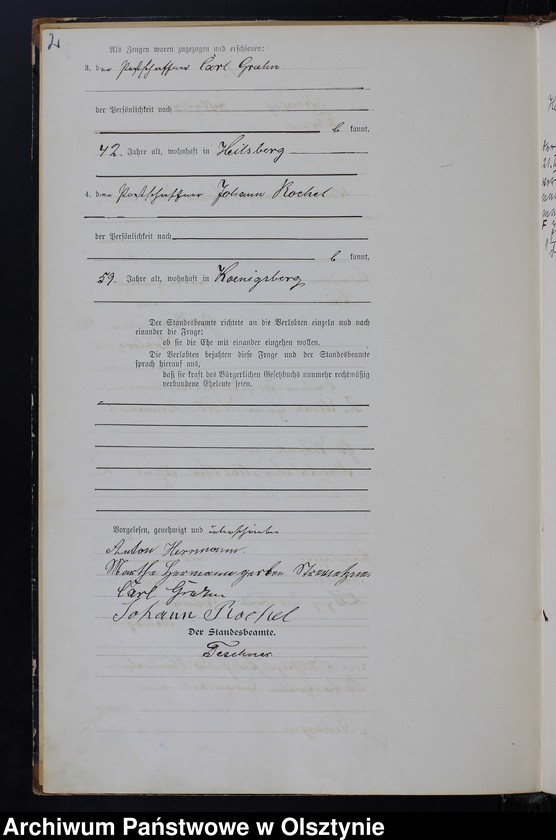 2
Als Zeugen waren zugezogen und erschienen:
3. der Postschaffner Carl Grahn
der Persönlichkeit nach
b kannt,
42. Jahre alt, wohnhaft in Heilsberg
4. der Postschaffner Johann Rochel
der Persönlichkeit nach
b kannt,
59. Jahre alt, wohnhaft in Koenigsberg
Der Standesbeamte richtete an die Verlobten einzeln und nach
einander die Frage:
ob sie die Ehe mit einander eingehen wollen.
Die Verlobten bejahten diese Frage und der Standesbeamte
sprach hierauf aus,
daß sie kraft des Bürgerlichen Gesetzbuchs nunmehr rechtmäßig
verbundene Eheleute seien.
Vorgelesen, genehmigt und unterschrieben
Anton Herrmann
Martha Hermann geborene
Carl Grahn
Johann Rochel
Der Standesbeamte.
Teschner
Archiwum Państwowe w Olsztynie